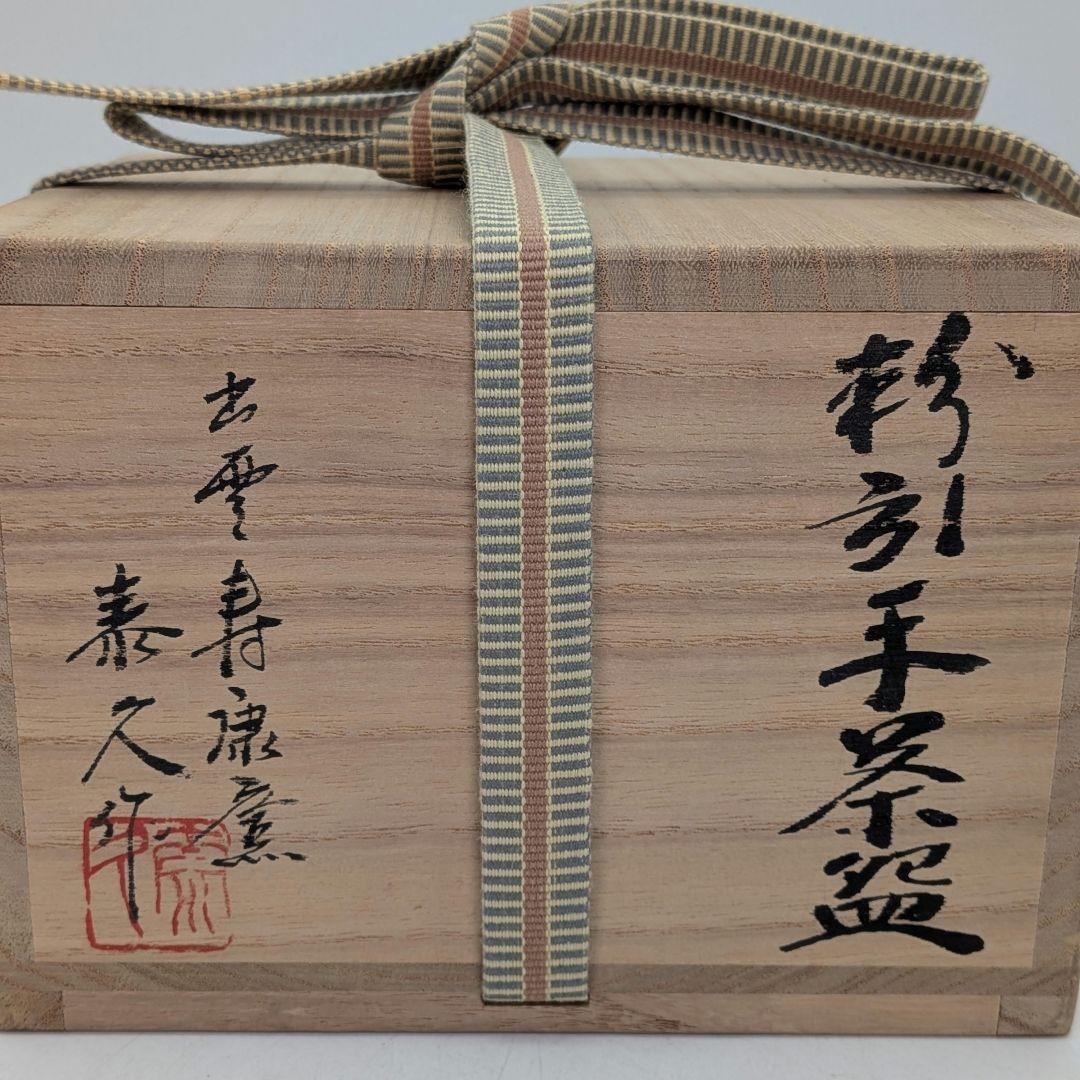 粉引手茶盌
出雲寿康窯
泰久作